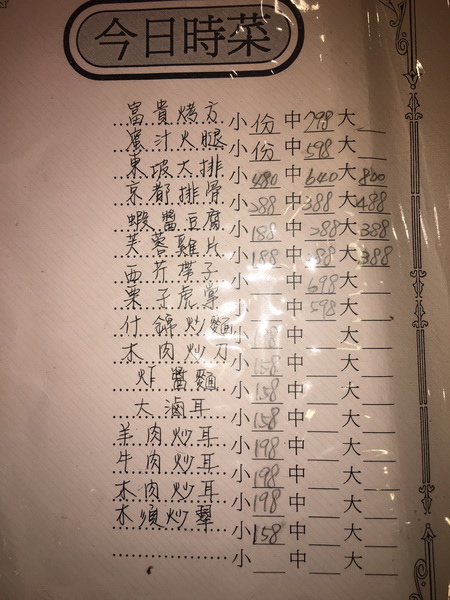 今日時菜
富貴烤方 小 份 中 798 大
蜜汁火腿 小 份 中 598 大
東坡大排 小 480 中 640 大 800
京都排骨 小 288 中 388 大 488
蝦醬豆腐 小 188 中 288 大 388
芙蓉雞片 小 188 中 288 大 388
西芹帶子 小 中 698 大
栗子虎掌 小 中 598 大
付錦炒麵 小 中 大
木肉炒刀 小 158 中 大
炸醬麵 小 158 中 大
大滷耳 小 158 中 大
羊肉炒耳 小 198 中 大
牛肉炒耳 小 198 中 大
木肉炒耳 小 198 中 大
木須炒 小 158 中 大
小 中 大